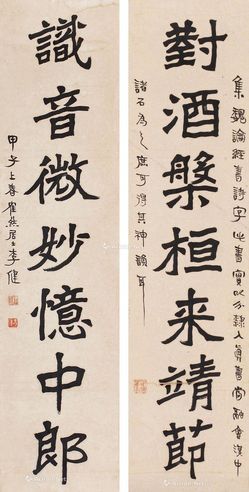 對酒槃桓来靖節
集魏論經書詩字此書實以分隸入真書尚融會漢中
諸石為之庶可得其神韻耳
識音微妙憶中郎
甲子上春崔然居士李健